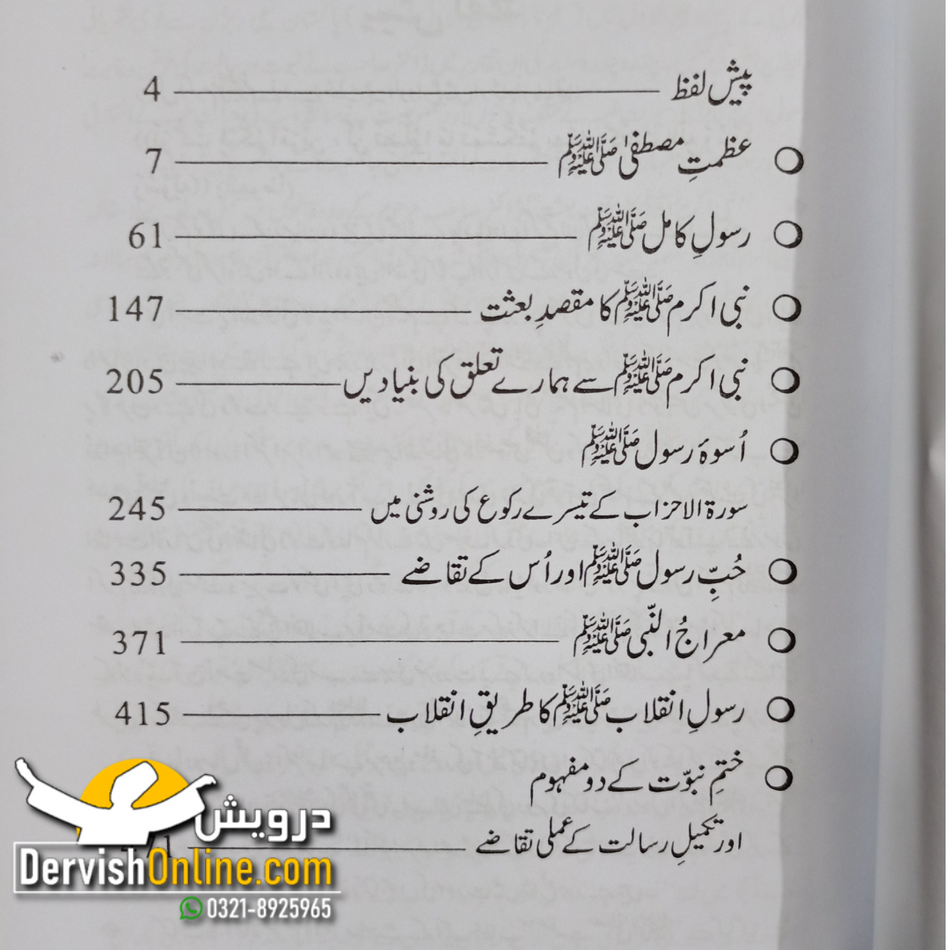 پیش لفظ 4
عظمتِ مصطفیٰ ﷺ 7
رسولِ کامل ﷺ 61
نبی اکرم ﷺ کا مقصدِ بعثت 147
نبی اکرم ﷺ سے ہمارے تعلق کی بنیادیں 205
اُسوۂ رسول ﷺ
سورۃ الاحزاب کے تیسرے رکوع کی روشنی میں 245
حُبِّ رسول ﷺ اور اُس کے تقاضے 335
معراجُ النّبی ﷺ 371
رسولِ انقلاب ﷺ کا طریقِ انقلاب 415
ختمِ نبوّت کے دو مفہوم
اور تکمیلِ رسالت کے عملی تقاضے
درویش
DervishOnline.com
0321-8925965